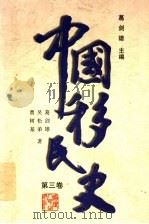 葛剑雄 主编
中国移民史
葛剑雄
吴松弟
曹树基
著
第三卷